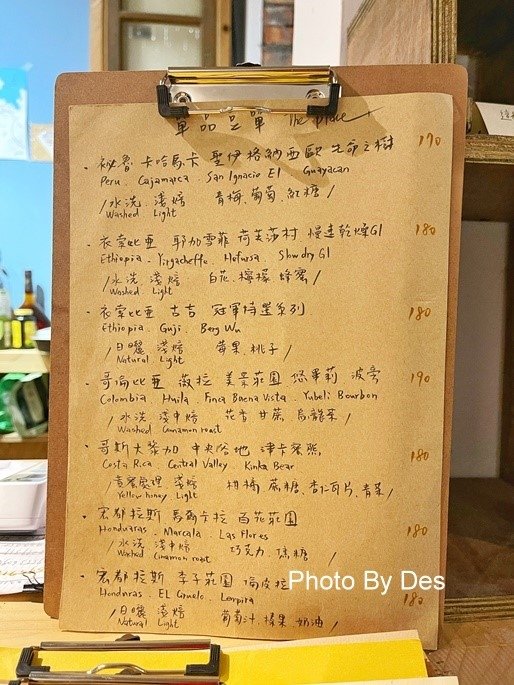 單品豆單 The place
秘魯 卡哈馬卡 聖伊格納西歐 生命之樹 170
Peru. Cajamarca San Ignacio El Guayacan
/水洗 淺焙 青梅、葡萄、紅糖/
Washed Light
衣索比亞 耶加雪菲 荷芙莎村 慢速乾燥G1 180
Ethiopia. Yirgacheffe. Hofursa. Slow dry G1
/水洗 淺焙 白花、檸檬、蜂蜜/
Washed Light
衣索比亞 古吉 冠軍特選系列 180
Ethiopia. Guji. Berg Wu
/日曬 淺焙 莓果、桃子/
Natural Light
哥倫比亞 薇拉 美景莊園 悠畢莉 波旁 190
Colombia Huila. Finca Buena Vista. Yubeli Bourbon
/水洗 淺中焙 花香、甘蔗、烏龍茶/
Washed Cinnamon roast
哥斯大黎加 中央谷地 津卡蜜熊 180
Costa Rica. Central Valley. Kinka Bear
/黃蜜處理 淺焙 柑橘、蔗糖、杏仁瓦片、青茶/
Yellow honey. Light
宏都拉斯 馬爾卡拉 百花莊園 180
Honduras. Marcala. Las Flores
/水洗 淺中焙 巧克力、焦糖/
Washed Cinnamon roast
宏都拉斯 李子莊園 倫皮拉 180
Honduras. EL Cruelo. Lempira
/日曬 淺焙 葡萄汁、榛果、奶油/
Natural Light
Photo By Des